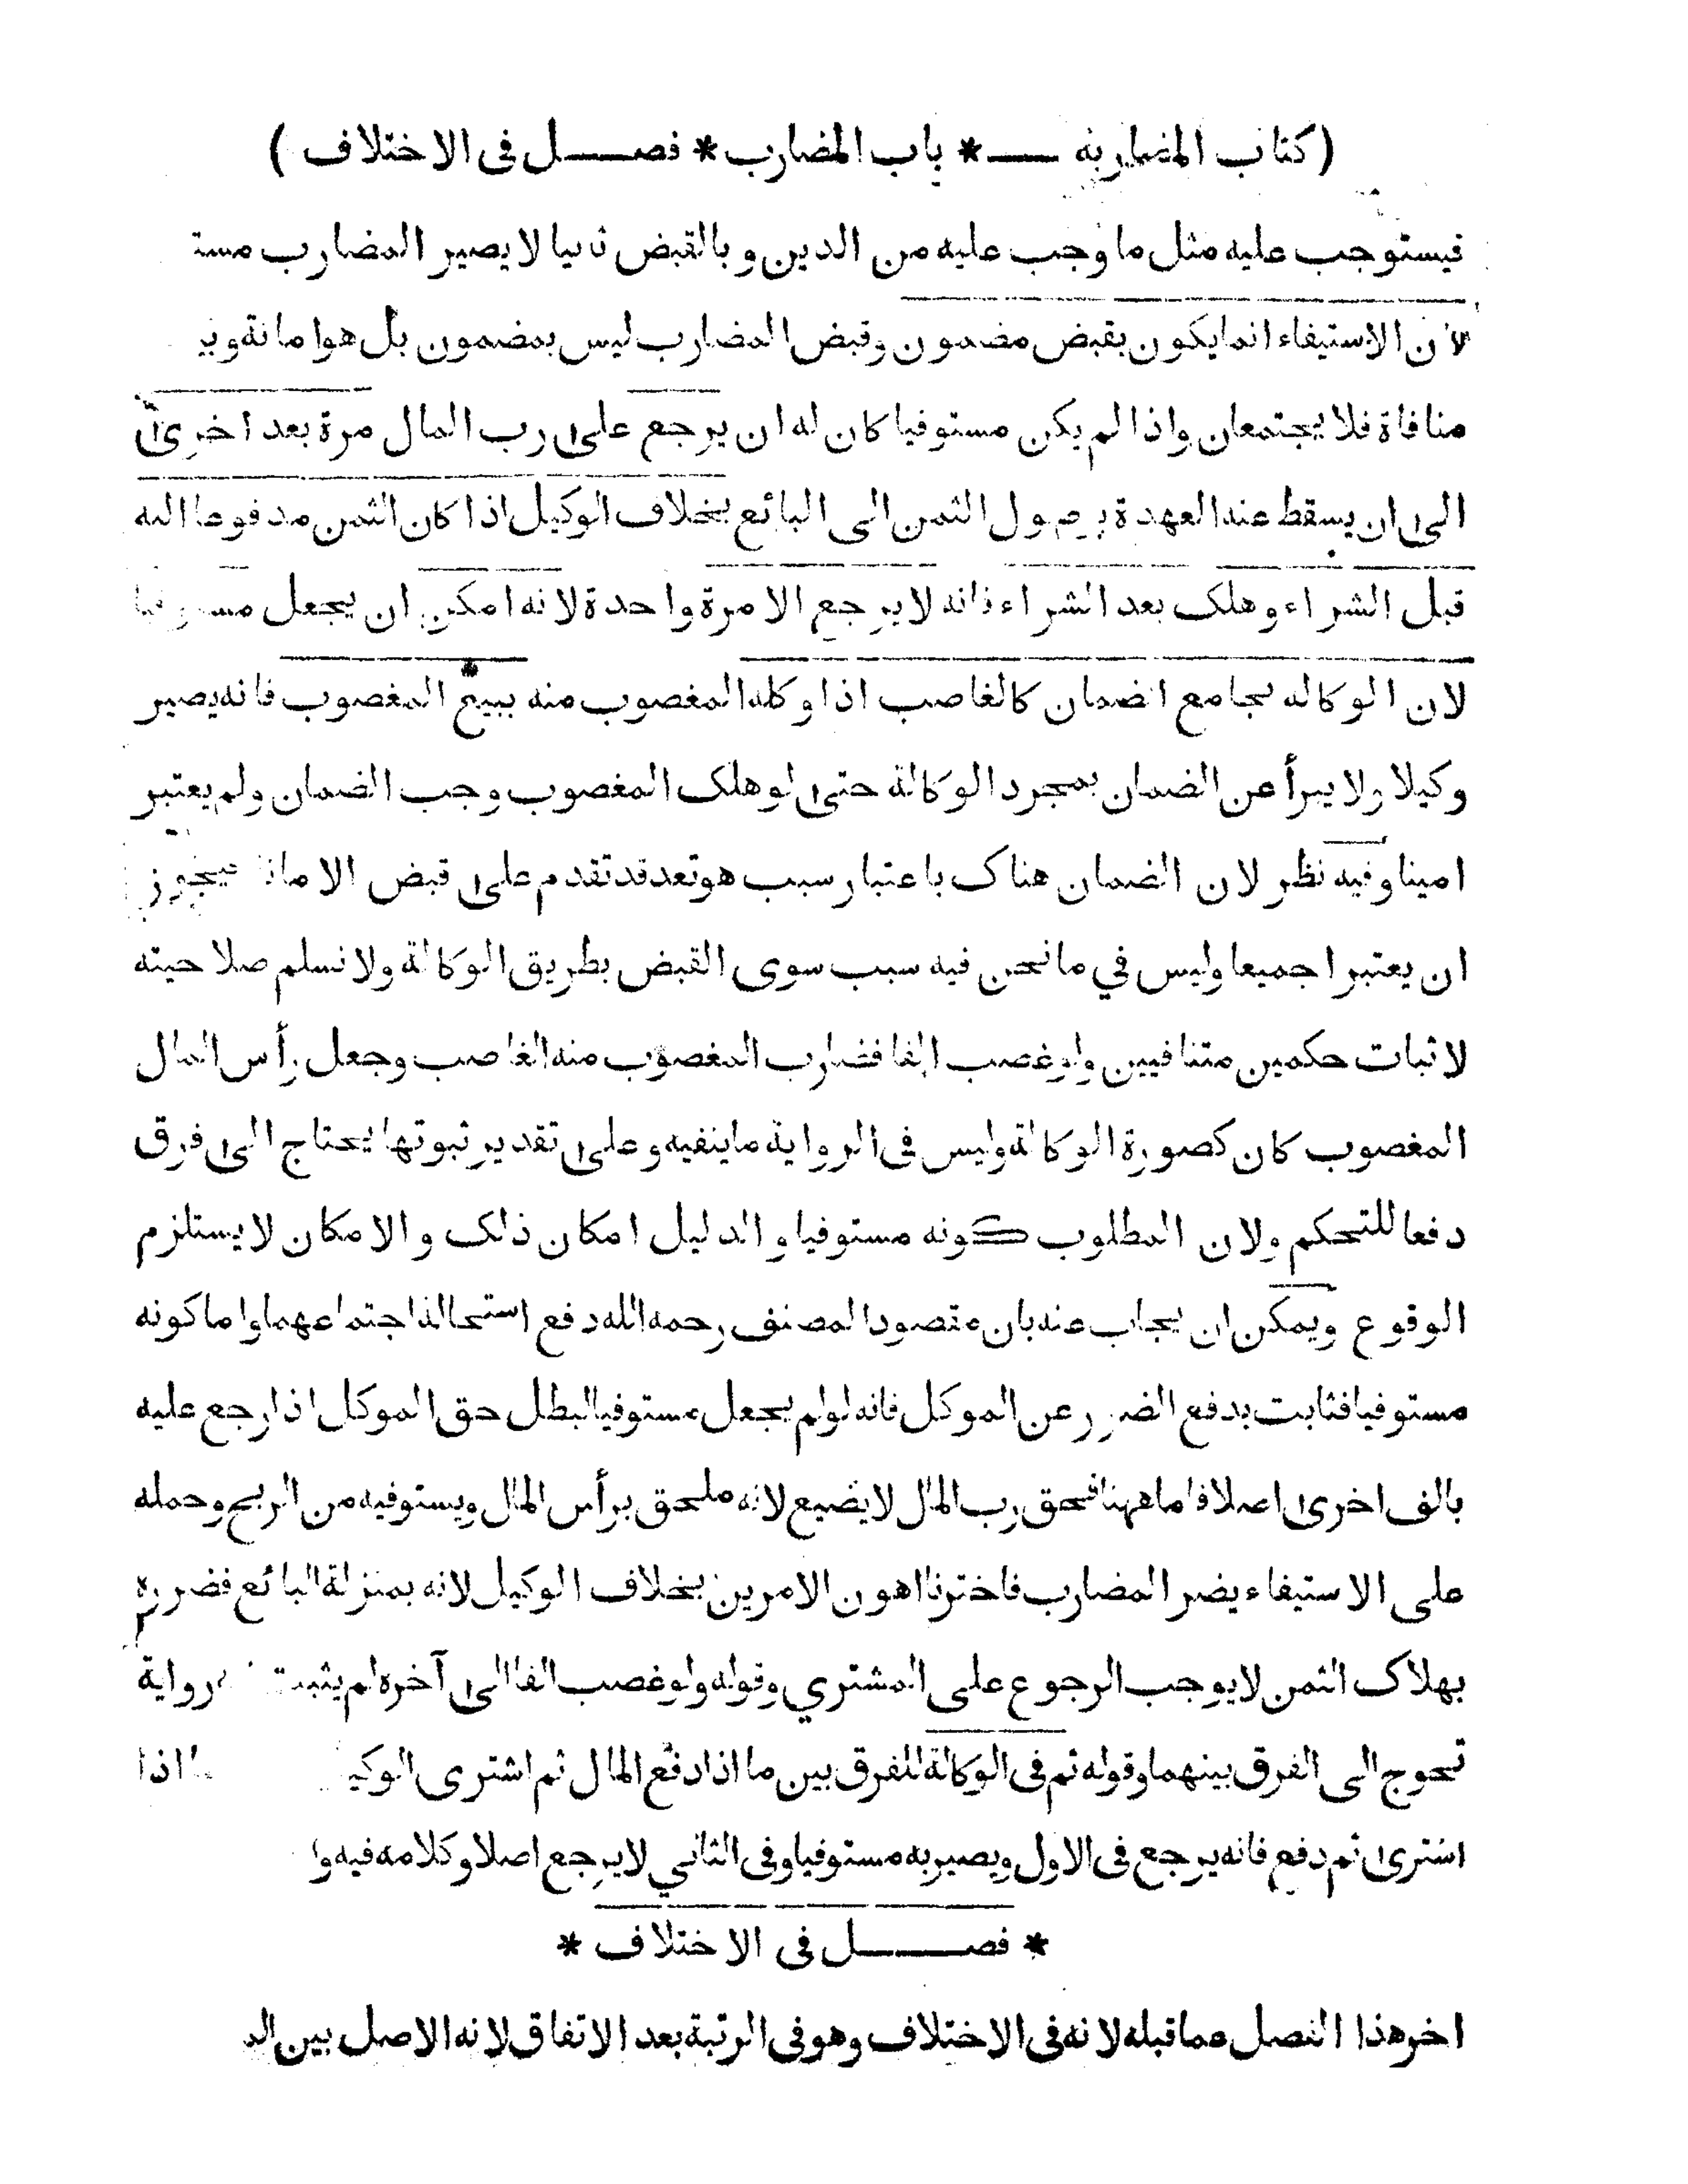 ( كتاب المضاربه — * باب المضارب * فصل فى الاختلاف )
فيستوجب عليه مثل ما وجب عليه من الدين و بالقبض ثانيا لا يصير المضارب مست
لان الاستيفاء انما يكون بقبض مضمون وقبض المضارب ليس بمضمون بل هو امانة و
منافاة فلا يجتمعان واذا لم يكن مستوفيا كان له ان يرجع على رب المال مرة بعد اخرى
الى ان يسقط عنه العهدة بوصول الثمن الى البائع بخلاف الوكيل اذا كان الثمن مدفوعا اليه
قبل الشراء و هلك بعد الشراء فانه لا يرجع الا مرة واحدة لانه امكن ان يجعل مستوفيا
لان الوكاله تجامع الضمان كالغاصب اذا وكله المغصوب منه ببيع المغصوب فانه يصير
وكيلا ولا يبرأ عن الضمان بمجرد الوكالة حتى لو هلك المغصوب وجب الضمان ولم يعتبر
امينا وفيه نظر لان الضمان هناك باعتبار سبب هو تعد قد تقدم على قبض الامانة فيجوز
ان يعتبرا جميعا وليس في ما نحن فيه سبب سوى القبض بطريق الوكالة ولا نسلم صلاحيته
لاثبات حكمين متنافيين ولو غصب الفا فضارب المغصوب منه الغاصب وجعل رأس المال
المغصوب كان كصورة الوكالة وليس فى الرواية ما ينفيه وعلى تقدير ثبوتها يحتاج الى فرق
دفعا للتحكم ولان المطلوب كونه مستوفيا و الدليل امكان ذلك و الامكان لا يستلزم
الوقوع ويمكن ان يجاب عنه بان مقصود المصنف رحمه الله دفع استحالة اجتماعهما واما كونه
مستوفيا فثابت بدفع الضرر عن الموكل فانه لو لم يجعل مستوفيا لبطل حق الموكل اذا رجع عليه
بالف اخرى اصلا فاما ههنا فحق رب المال لا يضيع لانه ملحق برأس المال ويستوفيه من الربح وحمله
على الاستيفاء يضر المضارب فاخترنا اهون الامرين بخلاف الوكيل لانه بمنزلة البائع فضرره
بهلاك الثمن لا يوجب الرجوع على المشتري وقوله ولو غصب الفا الى آخره لم يثبت رواية
تحوج الى الفرق بينهما وقوله ثم فى الوكالة للفرق بين ما اذا دفع المال ثم اشترى اذا
اشترى ثم دفع فانه يرجع فى الاول ويصير به مستوفيا وفى الثاني لا يرجع اصلا وكلامه فيه وا
* فصل فى الاختلاف *
اخر هذا الفصل عما قبله لانه فى الاختلاف وهو فى الرتبة بعد الاتفاق لانه الاصل بين